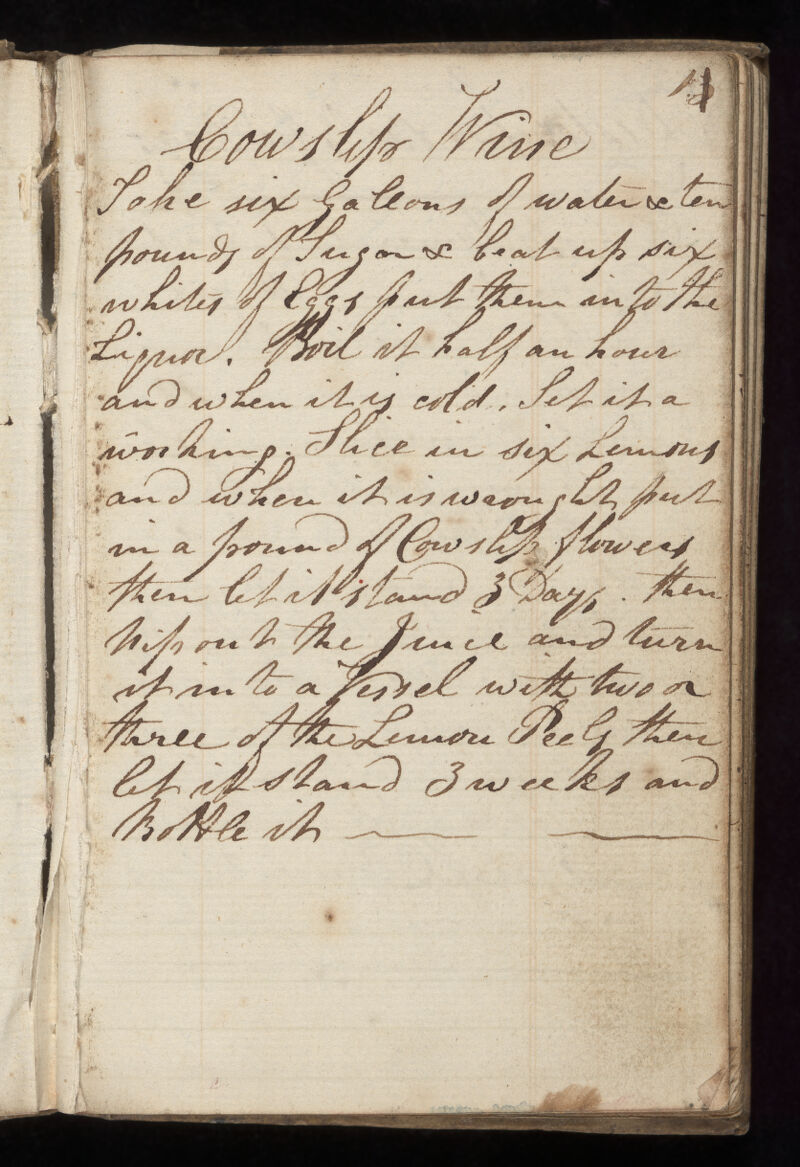 Cowslip Wine
Take six Galleons of water & ten
pounds of Sugar & beat up six
whites of Eggs put them into the
Liquor. Boil it half an hour
and when it is cold. Set it a
working. Slice in six Lemons
and when it is wrought put
in a pound of Cowslip flowers
then let it stand 3 Days. then
out the Juice and turn
it into a Vessel with two or
three of the Lemon Peels then
let it stand 3 weeks and
Bottle it